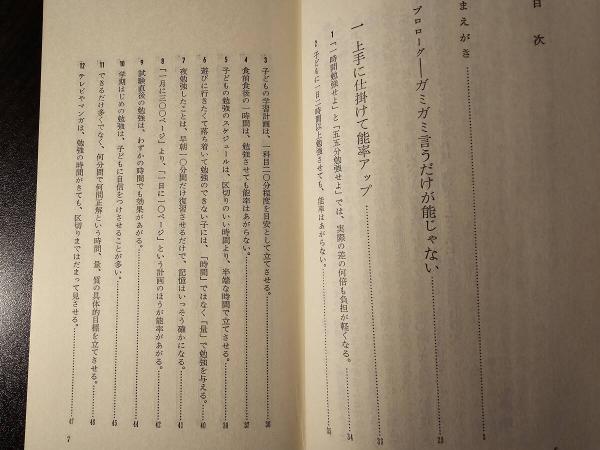 目次
まえがき 3
プロローグ――ガミガミ言うだけが能じゃない
一 上手に仕掛けて能率アップ 33
1 「一時間勉強せよ」と「五五分勉強せよ」では、実際の差の何倍も負担が軽くなる。 34
2 子どもに一日二時間以上勉強させても、能率はあがらない。 35
3 子どもの学習計画は、一科目二〇分程度を目安として立てさせる。 36
4 食前食後の一時間は、勉強させても能率はあがらない。 37
5 子どもの勉強のスケジュールは、区切りのいい時間より、半端な時間で立てさせる。 38
6 遊びに行きたくて落ち着いて勉強のできない子には、「時間」ではなく「量」で勉強を与える。 40
7 夜勉強したことは、早朝一〇分間だけ復習させるだけで、記憶はいっそう確かになる。 41
8 「一月に三〇〇ページ」より、「一日に一〇ページ」という計画のほうが能率があがる。 42
9 試験直後の勉強は、わずかの時間でも効果があがる。 44
10 学期はじめの勉強は、子どもに自信をつけさせることが多い。 45
11 できるだけ多くでなく、何分間で何問正解という時間、量、質の具体的目標を立てさせる。 46
12 テレビやマンガは、勉強の時間がきても、区切りまではだまって見させる。 47
7